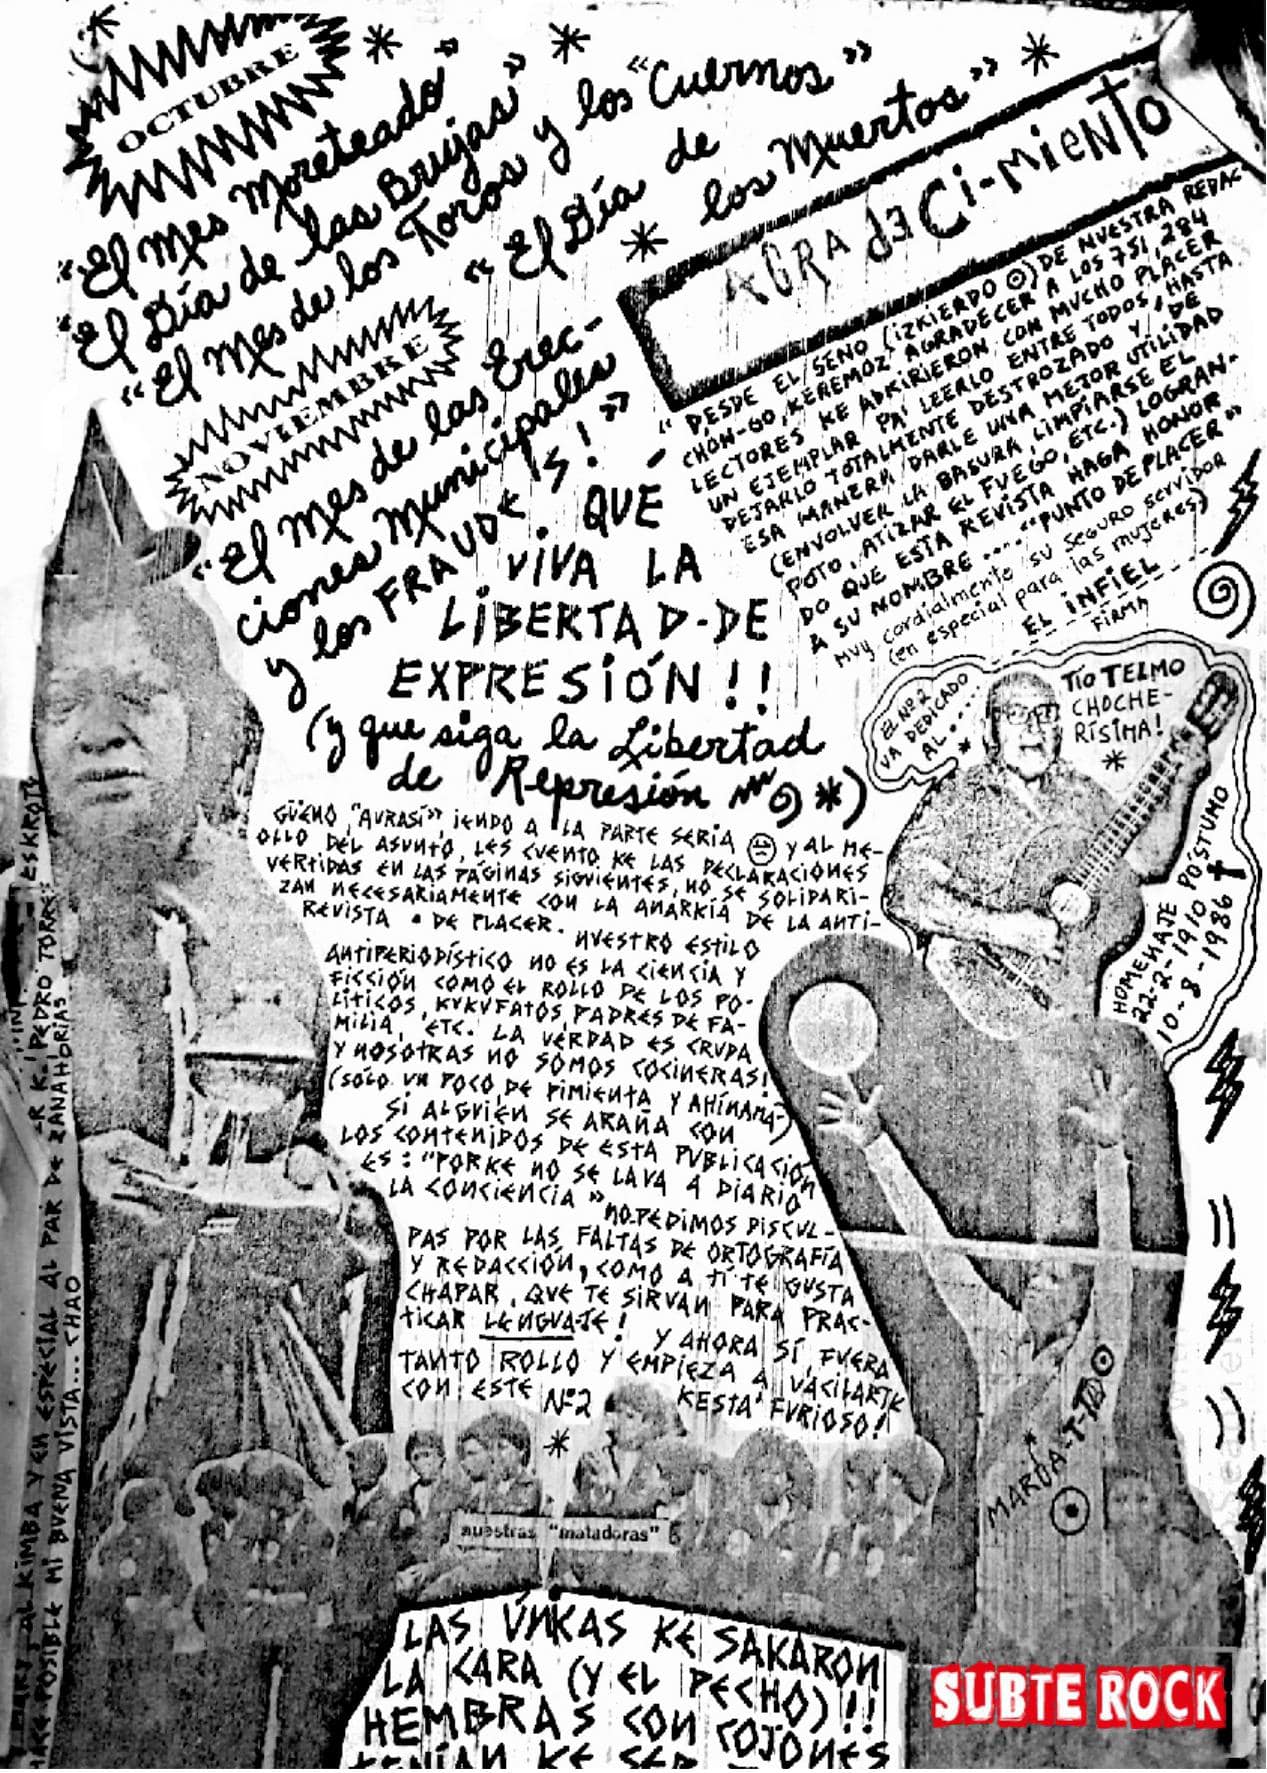 OCTUBRE
"El Mes Moreteado"
"El Día de las Brujas"
"El Mes de los Toros y los "Cuernos"
"El Día de
los Muertos"
NOVIEMBRE
"El Mes de las Erec-
ciones Municipales
y los FRAUDES!"
AGRAdeCi-MIENTO
"DESDE EL SENO (IZKIERDO) DE NUESTRA REDAC-
CHÓN-GO, KEREMOZ AGRADECER A LOS 751,284
LECTORES KE ADKIRIERON CON MUCHO PLACER
UN EJEMPLAR PA' LEERLO ENTRE TODOS, HASTA
DEJARLO TOTALMENTE DESTROZADO Y DE
ESA MANERA DARLE UNA MEJOR UTILIDAD
(ENVOLVER LA BASURA, LIMPIARSE EL
POTO, ATIZAR EL FUEGO, ETC.) LOGRAN-
DO QUE ESTA REVISTA HAGA HONOR
A SU NOMBRE .... "PUNTO DE PLACER"
MUY cordialmente su seguro servidor
(en especial para las mujeres)
EL INFIEL
FIRMA
¡QUÉ
VIVA LA
LIBERTAD-DE
EXPRESIÓN!!
(y que siga la Libertad
de Represión *)
EL Nº 2
VA DEDICADO
AL.....
TÍO TELMO
CHOCHE-
RÍSIMA!
HOMENAJE PÓSTUMO
22-2-1910
10-8-1986
GÜENO, "AURASÍ", IENDO A LA PARTE SERIA Y AL ME-
OLLO DEL ASUNTO, LES CUENTO KE LAS DECLARACIONES
VERTIDAS EN LAS PÁGINAS SIGUIENTES, NO SE SOLIDARI-
ZAN NECESARIAMENTE CON LA ANARKÍA DE LA ANTI-
REVISTA • DE PLACER.
NUESTRO ESTILO
ANTIPERIODÍSTICO NO ES LA CIENCIA Y
FICCIÓN COMO EL ROLLO DE LOS PO-
LÍTICOS, KUKUFATOS, PADRES DE FA-
MILIA, ETC. LA VERDAD ES CRUDA
Y NOSOTRAS NO SOMOS COCINERAS!
(SÓLO UN POCO DE PIMIENTA Y AHÍNAMÁ)
SI ALGUIÉN SE ARAÑA CON
LOS CONTENIDOS DE ESTA PUBLICACIÓN
ES: "PORKE NO SE LAVA A DIARIO
LA CONCIENCIA"
NO PEDIMOS DISCUL-
PAS POR LAS FALTAS DE ORTOGRAFÍA
Y REDACCIÓN, COMO A TÍ TE GUSTA
CHAPAR, QUE TE SIRVAN PARA PRAC-
TICAR LENGUAJE!
Y AHORA SÍ, FUERA
TANTO ROLLO Y EMPIEZA A VACILARTE
CON ESTE Nº2 KESTÁ FURIOSO!
MARÍA-T-TA
nuestras "matadoras"
LAS ÚNIKAS KE SAKARON
LA CARA (Y EL PECHO)!!
HEMBRAS CON COJONES
TENÍAN KE SER
PEDRO TORRES
AL KIMBA Y EN ESPECIAL AL PAR DE ZANAHORIAS
HACE POSIBLE MI BUENA VISTA... CHAO
SUBTE ROCK